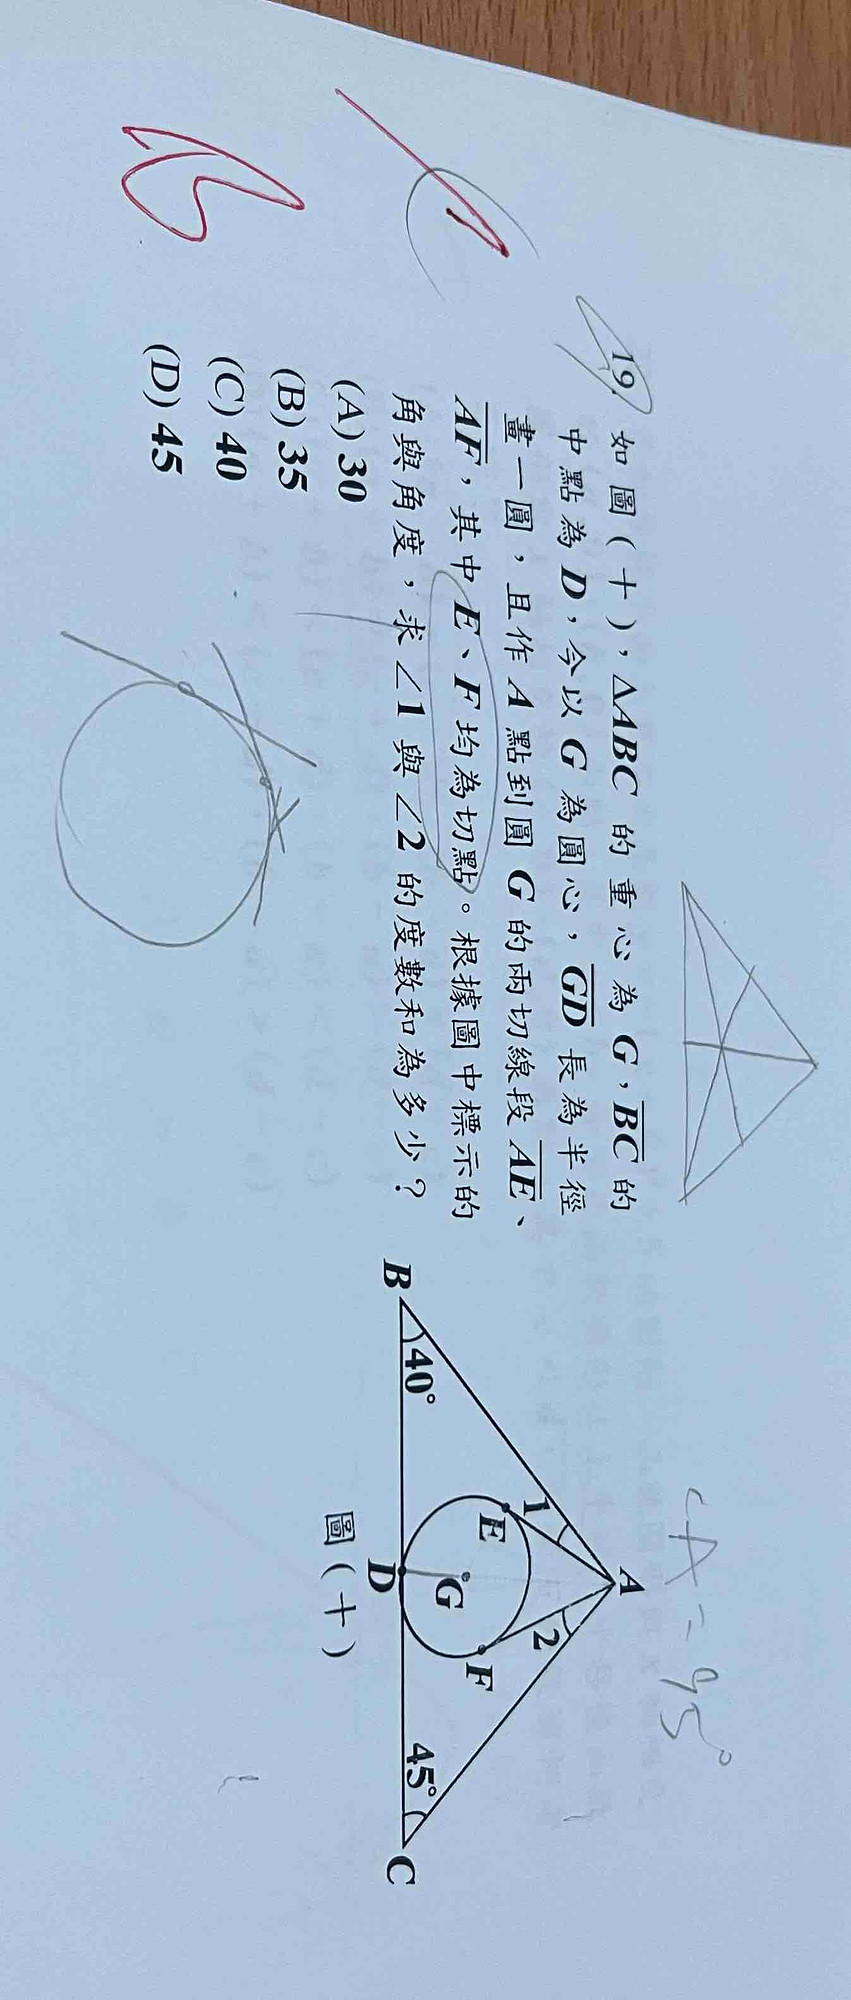 19. 如圖(十),△ABC 的重心為 G,BC 的
中點為 D,今以 G 為圓心,GD 長為半徑
畫一圓,且作 A 點到圓 G 的兩切線段 AE、
AF,其中 E、F 均為切點。根據圖中標示的
角與角度,求∠1 與∠2 的度數和為多少?
(A) 30
(B) 35
(C) 40
(D) 45
A
1
2
E
F
G
B
40°
D
45°
C
圖(十)
<A=95°
B